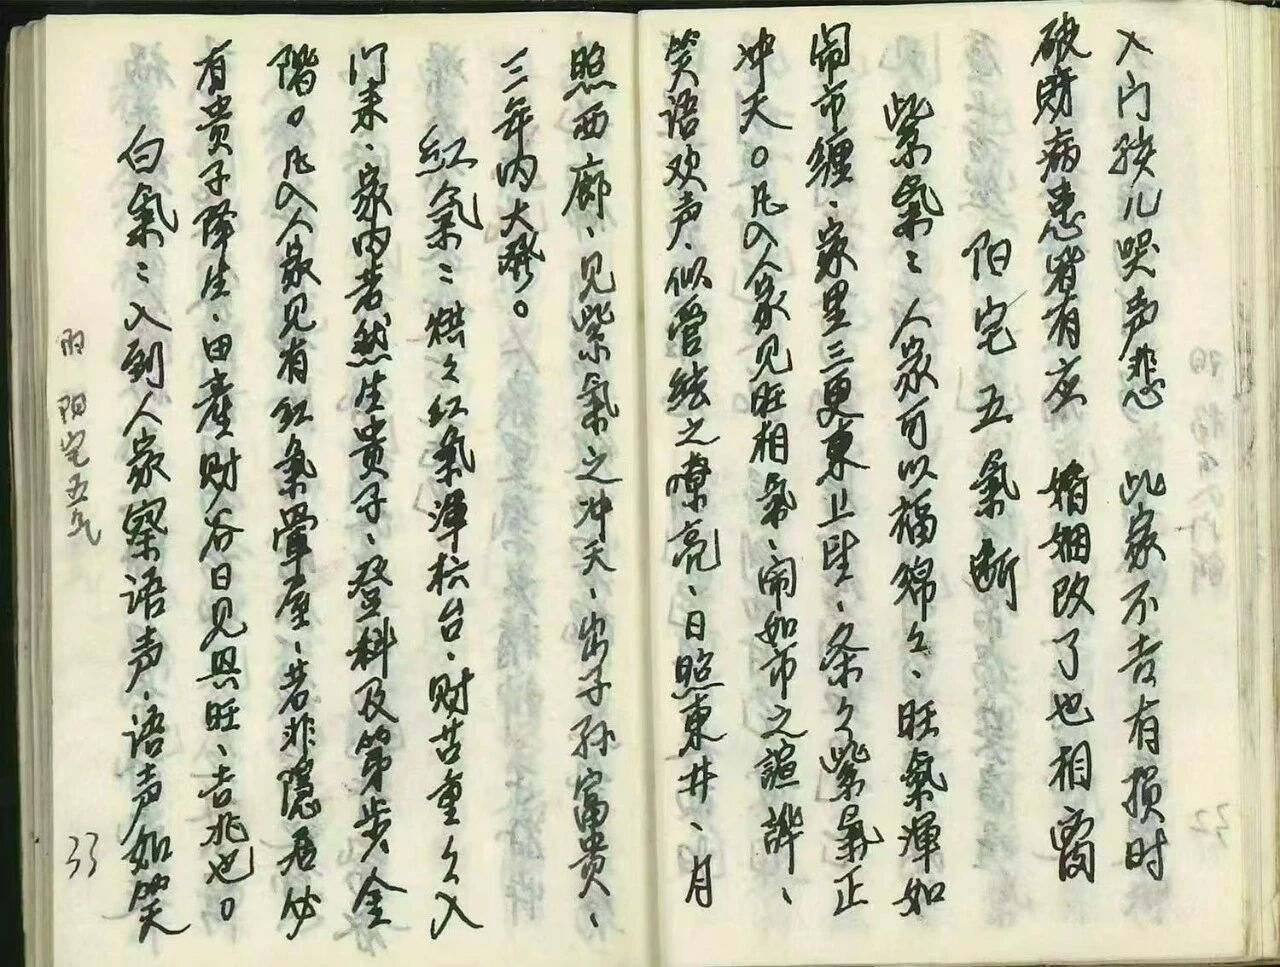 入门孩儿哭声悲 此家不吉有损时
破财病患皆有应 婚姻改了也相
阳宅五氣断
紫氣：人家可以福綿々、旺氣渾如
闹市纏、家里三更東上、条々紫氣正
冲天。凡入人家见旺相氣、闹如市之諠譁、
笑语欢声、似管絃之嘹亮、日照東井、月
照西廊、见紫氣之冲天、出子孙富贵、
三年内大發。
红氣：烘々红氣渾台、财苦重々入
门来、家内若然生贵子、登科及第步金
階。凡入人家见有红氣暈屋、若非隐居必
有贵子降生、田產财谷日见兴旺、吉兆也。
白氣：入到人家察语声、语声如笑
阳宅五气
33